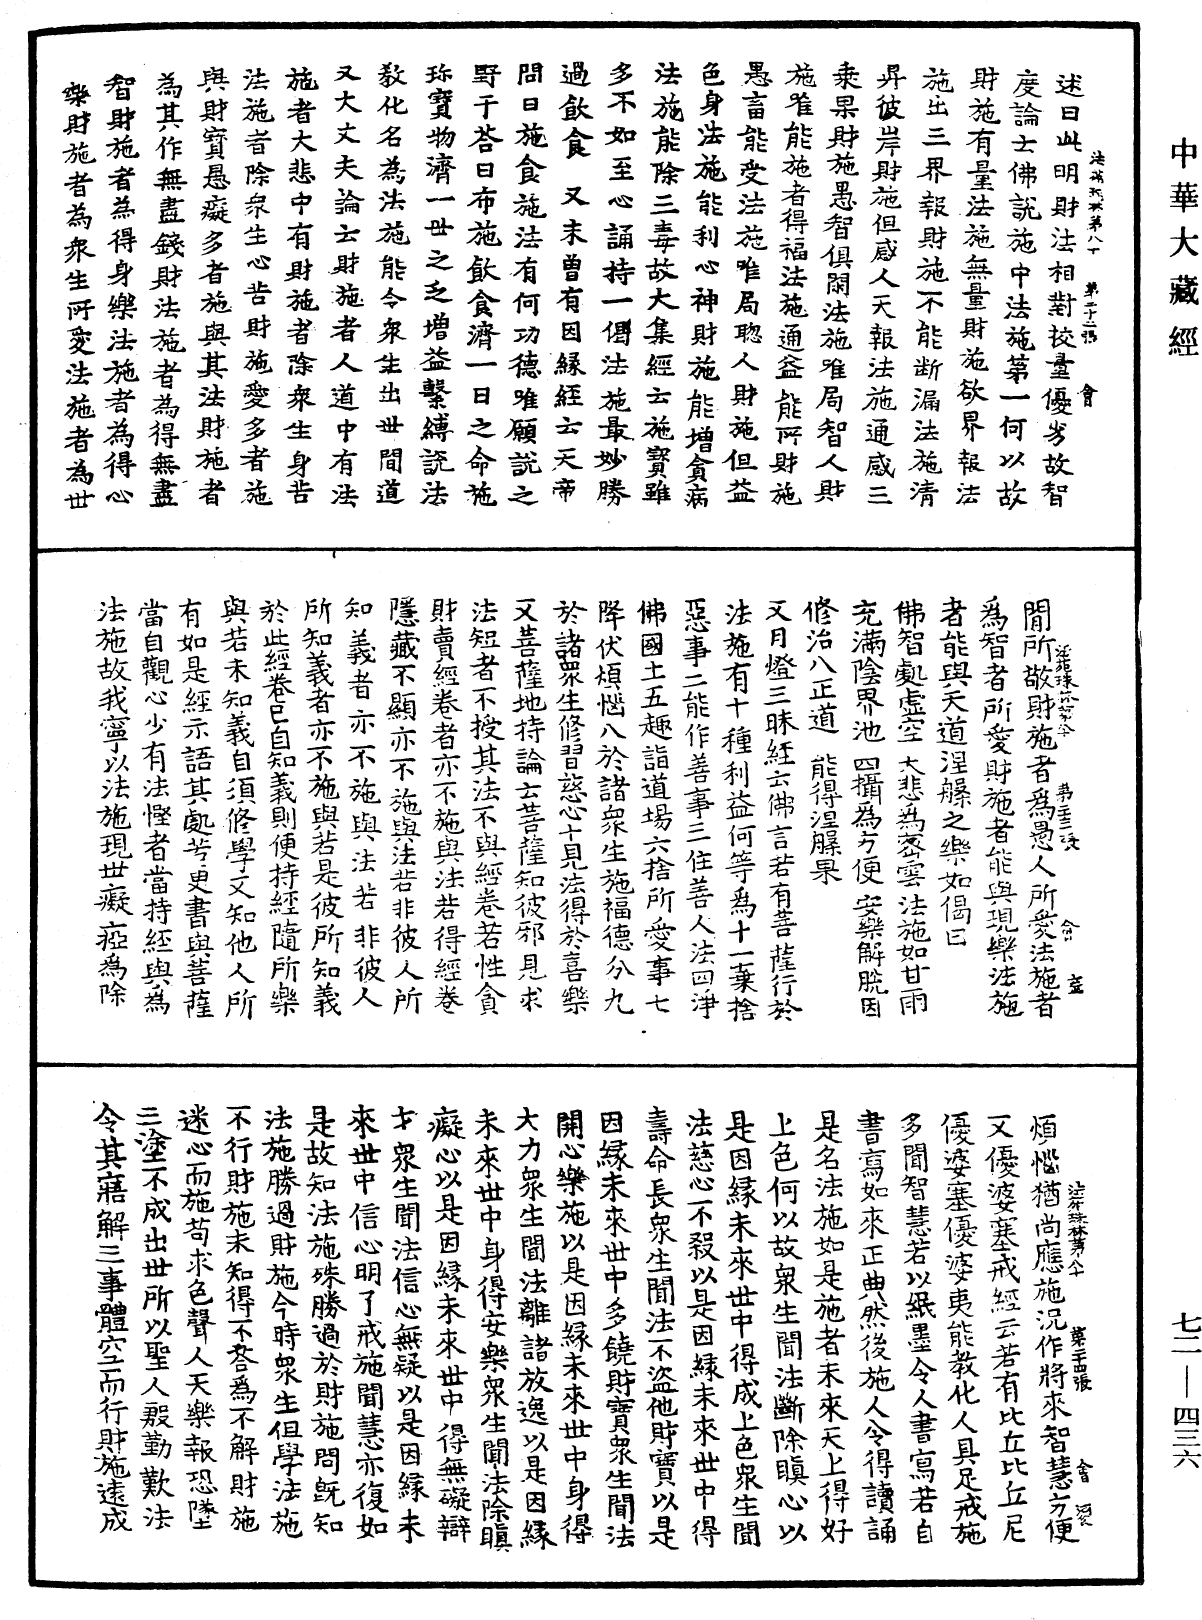 中華大藏經
法苑珠林第八十　第二十二張　會
述曰此明財法相對校量優劣故智
度論云佛說施中法施第一何以故
財施有量法施無量財施欲界報法
施出三界報財施不能断漏法施清
昇彼岸財施但感人天報法施通感三
乘果財施愚智俱閑法施唯局智人財
施唯能施者得福法施通益能所財施
愚畜能受法施唯局聦人財施但益
色身法施能利心神財施能增貪病
法施能除三毒故大集經云施寶雖
多不如至心誦持一偈法施最妙勝
過飲食　又未曾有因緣經云天帝
問曰施食施法有何功德唯願說之
野干荅曰布施飲食濟一日之命施
珎寶物濟一世之乏增益繫縛說法
教化名為法施能令衆生出世間道
又大丈夫論云財施者人道中有法
施者大悲中有財施者除衆生身苦
法施者除衆生心苦財施愛多者施
與財寶愚癡多者施與其法財施者
為其作無盡錢財法施者為得無盡
智財施者為得身樂法施者為得心
樂財施者為衆生所愛法施者為世
法苑珠林第八十　第二十三張　會
間所敬財施者為愚人所愛法施者
為智者所愛財施者能與現樂法施
者能與天道涅槃之樂如偈曰
佛智處虛空　大悲為密雲　法施如甘雨
充滿陰界池　四攝為方便　安樂解脫因
修治八正道　能得涅槃果
又月燈三昧經云佛言若有菩薩行於
法施有十種利益何等為十一棄捨
惡事二能作善事三住善人法四淨
佛國土五趣詣道場六捨所愛事七
降伏煩惱八於諸衆生施福德分九
於諸衆生修習慈心十見法得於喜樂
又菩薩地持論云菩薩知彼邪見求
法短者不授其法不與經卷若性貪
財賣經卷者亦不施與法若得經卷
隱藏不顯亦不施與法若非彼人所
知義者亦不施與法若非彼人
所知義者亦不施與若是彼所知義
於此經卷已自知義則便持經隨所樂
與若未知義自須修學又知他人所
有如是經示語其處若更書與菩薩
當自觀心少有法慳者當持經與為
法施故我寧以法施現世癡瘂為除
法苑珠林第八十　第二十四張　會
煩惱猶尚應施況作將來智慧方便
又優婆塞戒經云若有比丘比丘尼
優婆塞優婆夷能教化人具足戒施
多聞智慧若以紙墨令人書寫若自
書寫如來正典然後施人令得讀誦
是名法施如是施者未來天上得好
上色何以故衆生聞法斷除瞋心以
是因緣未來世中得成上色衆生聞
法慈心不殺以是因緣未來世中得
壽命長衆生聞法不盜他財寶以是
因緣未來世中多饒財寶衆生聞法
開心樂施以是因緣未來世中身得
大力衆生聞法離諸放逸以是因緣
未來世中身得安樂衆生聞法除瞋
癡心以是因緣未來世中得無礙辯
才衆生聞法信心無疑以是因緣未
來世中信心明了戒施聞慧亦復如
是故知法施殊勝過於財施問既知
法施勝過財施今時衆生但學法施
不行財施未知得不荅為不解財施
迷心而施苟求色聲人天樂報恐墜
三塗不成出世所以聖人殷勤歎法
令其寤解三事體空而行財施遠成
七二—四三六